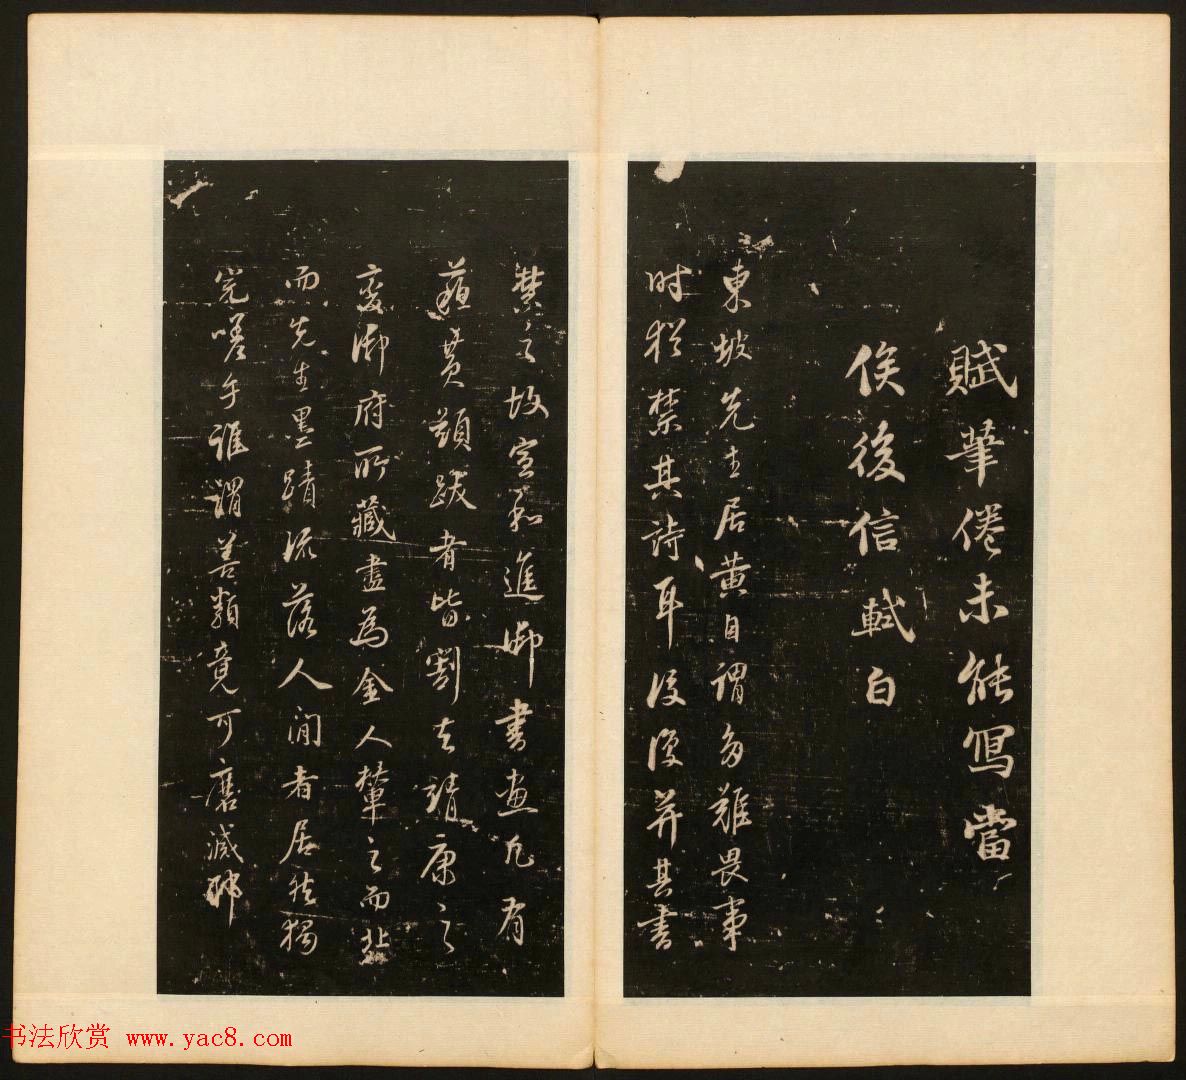 賦筆倦未能寫當
俟後信軾白
東坡先生居黃自謂多難畏事
时猶禁其詩耳後復并其書
焚之故宣和進御書畫凡有
蘇黄題跋者皆割去靖康之
變御府所藏盡為金人輦之而北
而先生墨蹟流落人間者居然獨
完嗟乎誰謂善類竟可磨滅耶
书法欣赏 www.yac8.com